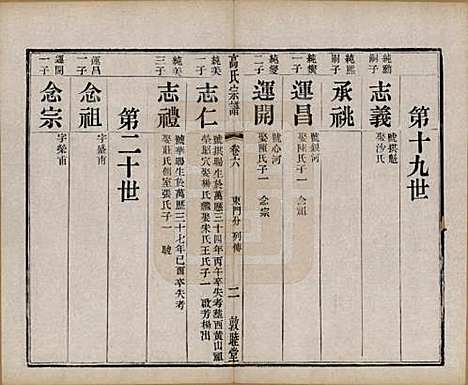 第十九世
純勳嗣子
志義
號拱魁
娶沙氏
純熙嗣子
承祧
純燮一子
運昌
號銀河
娶陳氏子一
念祖
純燮二子
運開
號心河
娶陳氏子一
念宗
高氏宗譜
卷六
東門分
列傳
二
敦睦堂
純美一子
志仁
號拱陽生於萬歷三十四年丙午卒失考葬西黃山
祭昭穴娶楊氏繼娶宋氏王氏子一
啟芳楊出
純美三子
志禮
號華陽生於萬歷三十七年己酉卒失考
娶莊氏側室張氏子一
駿
第二十世
運昌一子
念祖
字盛甫
運開一子
念宗
字榮甫